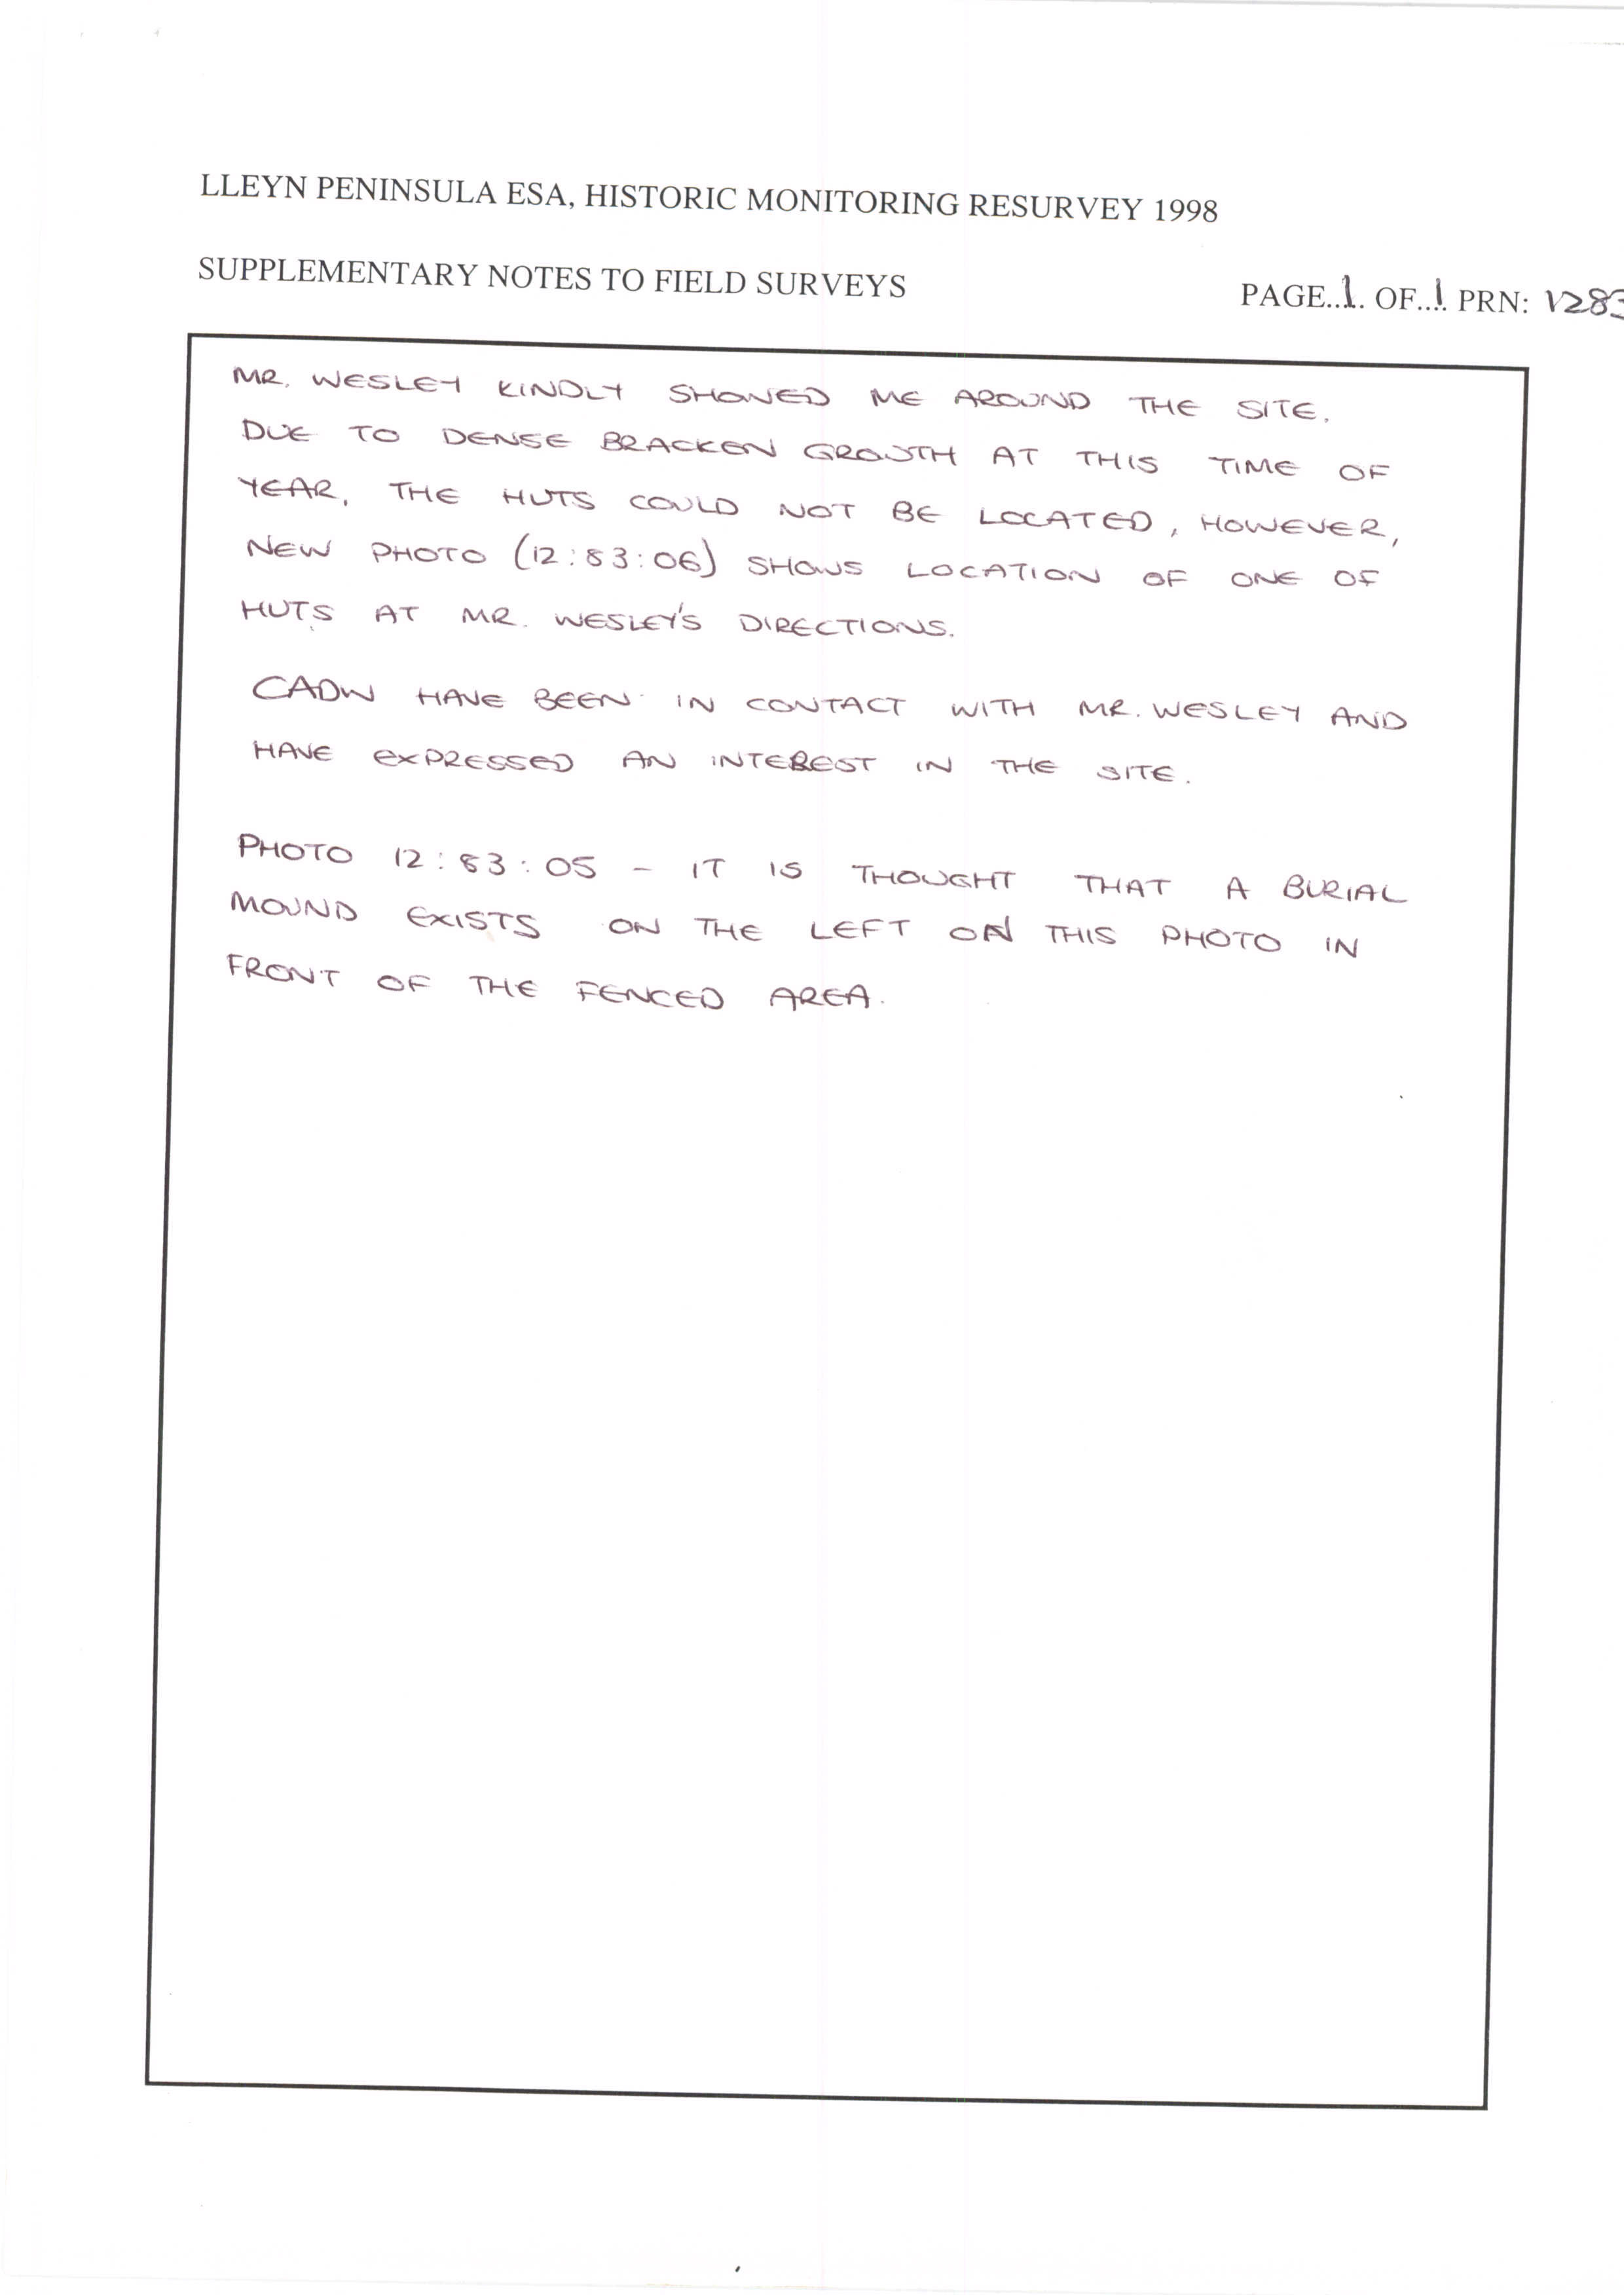 LLEYN PENINSULA ESA, HISTORIC MONITORING RESURVEY 1998
SUPPLEMENTARY NOTES TO FIELD SURVEYS
PAGE..1. OF..1. PRN: 1283
MR. WESLEY KINDLY SHOWED ME AROUND THE SITE.
DUE TO DENSE BRACKEN GROWTH AT THIS TIME OF
YEAR, THE HUTS COULD NOT BE LOCATED, HOWEVER,
NEW PHOTO (12:83:06) SHOWS LOCATION OF ONE OF
HUTS AT MR. WESLEY'S DIRECTIONS.
CADW HAVE BEEN IN CONTACT WITH MR. WESLEY AND
HAVE EXPRESSED AN INTEREST IN THE SITE.
PHOTO 12:83:05 - IT IS THOUGHT THAT A BURIAL
MOUND EXISTS ON THE LEFT ON THIS PHOTO IN
FRONT OF THE FENCED AREA.